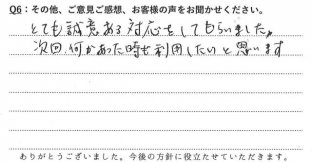 Q6：その他、ご意見ご感想、お客様の声をお聞かせください。
とても誠意ある対応をしてもらいました。
次回何かあった時も利用したいと思います
ありがとうございました。今後の方針に役立たせていただきます。